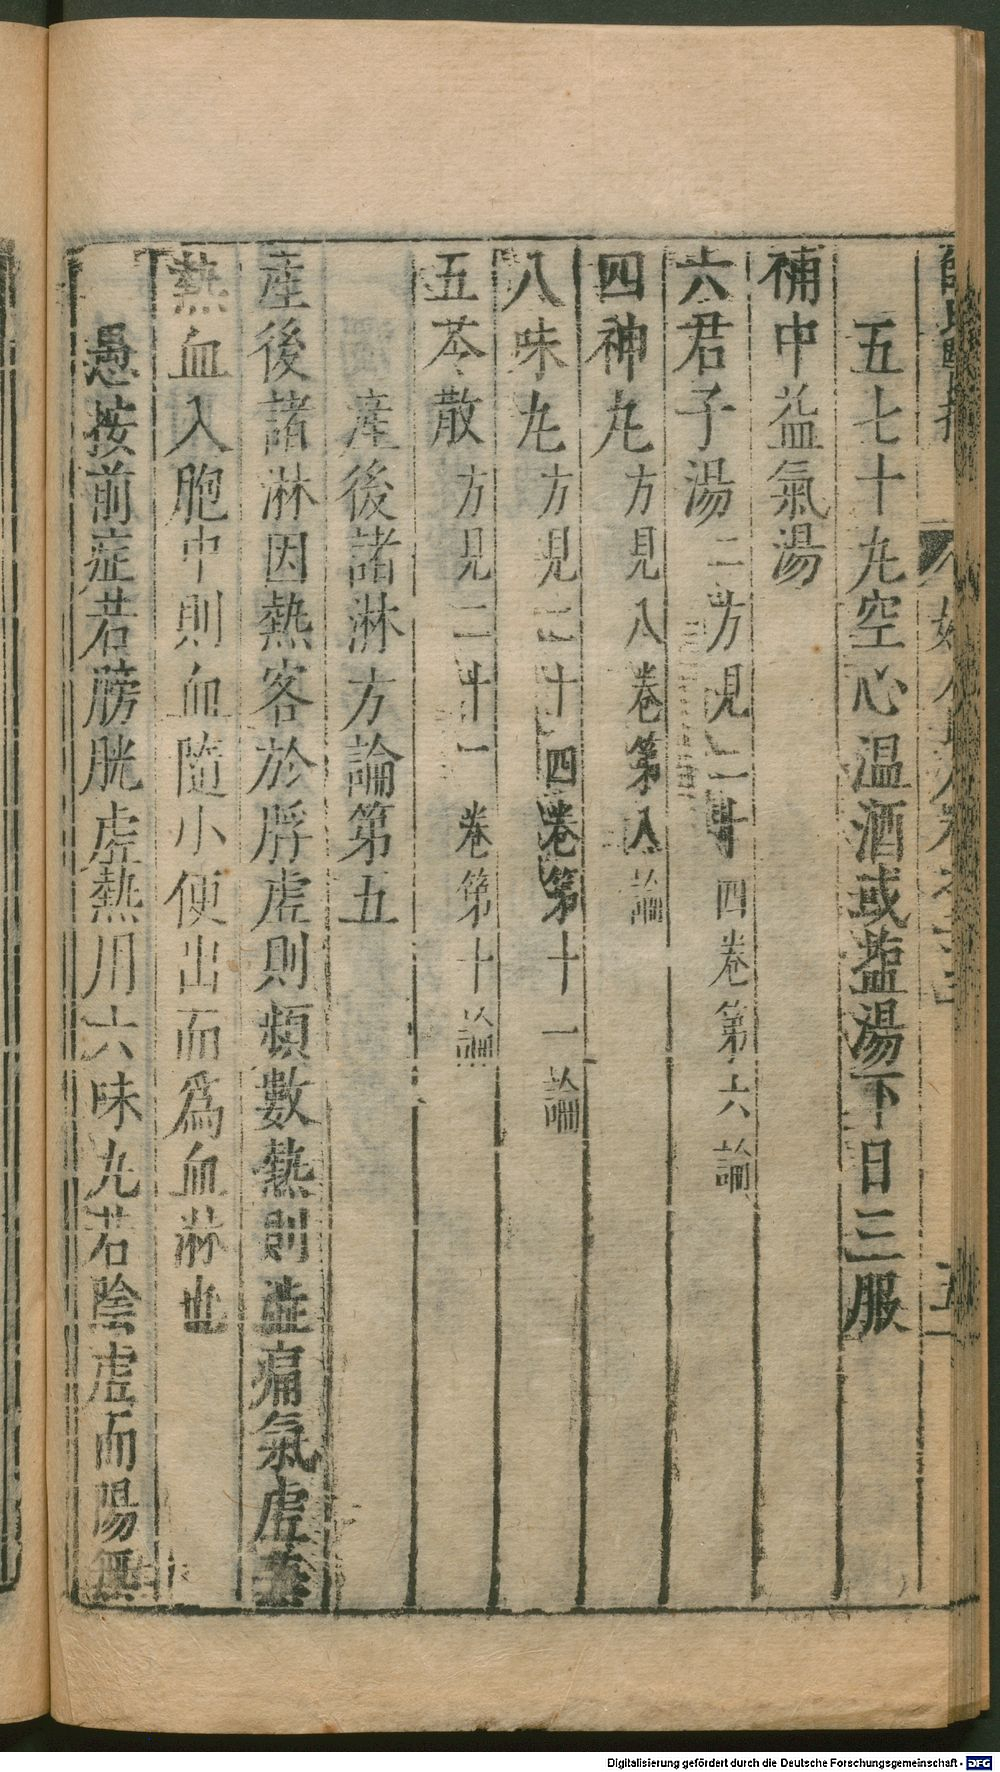 五七十丸空心温酒或盐湯下日三服
補中益氣湯
六君子湯二方見二十四卷第六論
四神丸方見八卷第八論
八味丸方見二十四卷第十一論
五苓散方見二十一卷第十論
產後諸淋方論第五
產後諸淋因熱客於脬虛則頻數熱則澁痛氣虛兼
熱血入胞中則血隨小便出而爲血淋也
愚按前症若膀胱虛熱用六味丸若陰虛而陽無
Digitalisierung gefördert durch die Deutsche Forschungsgemeinschaft - DFG